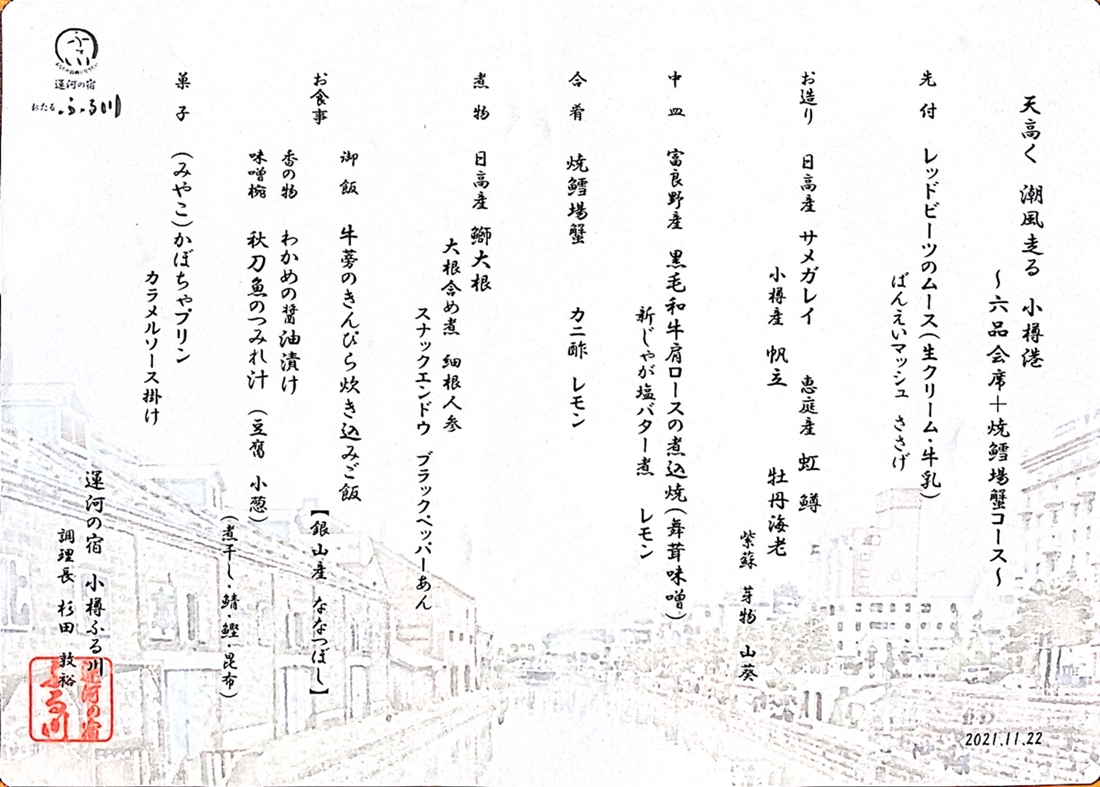 天高く 潮風走る 小樽港
～六品会席＋焼鱈場蟹コース～
先付 レッドビーツのムース(生クリーム・牛乳)
ばんえいマッシュ ささげ
お造り 日高産 サメガレイ 恵庭産 虹鱒
小樽産 帆立 牡丹海老
紫蘇 芽物 山葵
中皿 富良野産 黒毛和牛肩ロースの煮込焼(舞茸味噌)
新じゃが塩バター煮 レモン
合肴 焼鱈場蟹 カニ酢 レモン
煮物 日高産 鰤大根
大根含め煮 細根人参
スナックエンドウ ブラックペッパーあん
お食事
御飯 牛蒡のきんぴら炊き込みご飯
【銀山産 ななつぼし】
香の物 わかめの醤油漬け
味噌椀 秋刀魚のつみれ汁 (豆腐 小葱)
(煮干し・鯖・鰹・昆布)
菓子 (みやこ)かぼちゃプリン
カラメルソース掛け
運河の宿 小樽ふる川
調理長 杉田 敦裕
運河の宿
ふる川
運河の宿
おたる ふる川
2021.11.22